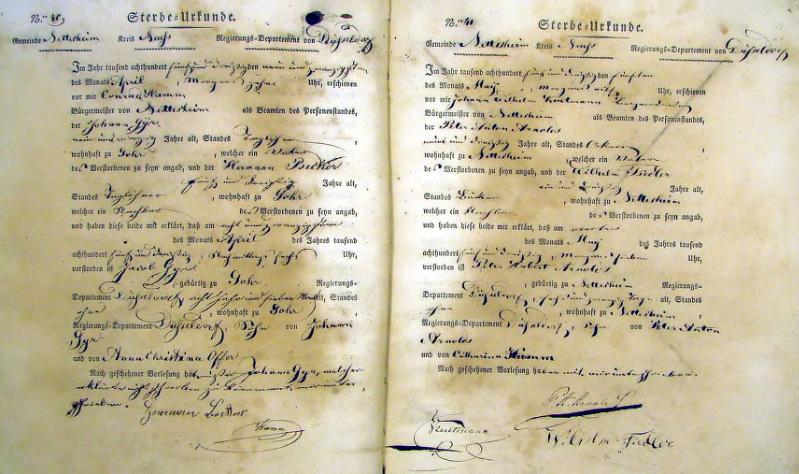 Nro. 40. Sterbe-Urkunde.
Gemeinde Nettesheim Kreis Neuss Regierungs-Departement von Düsseldorf
Im Jahr tausend achthundert fünf und dreißig den neun und zwanzigsten
des Monats April, morgens zehn Uhr, erschienen
vor mir Conrad Hamm
Bürgermeister von Nettesheim als Beamten des Personenstandes,
der Johann Gyr
neun und vierzig Jahre alt, Standes Taglöhner
wohnhaft zu Gohr, welcher ein Vater
des Verstorbenen zu seyn angab, und der Hermann Becker
fünf und dreißig Jahre alt,
Standes Taglöhner, wohnhaft zu Gohr,
welcher ein Nachbar des Verstorbenen zu seyn angab,
und haben diese beide mir erklärt, daß am acht und zwanzigsten
des Monats April des Jahres tausend
achthundert fünf und dreißig, Nachmittags sechs Uhr,
verstorben ist Jacob Gyr
, gebürtig zu Gohr Regierungs-
Departement Düsseldorf, acht Jahr und sieben Monat alt, Standes
, wohnhaft zu Gohr
Regierungs-Departement Düsseldorf, Sohn von Johann
Gyr
und von Anna Christina
Nach geschehener Vorlesung hat Johann Gyr, welcher
erklärte nicht schreiben zu können mit mir unter-
schrieben. Hermann Becker
Hamm
Nro. 41. Sterbe-Urkunde.
Gemeinde Nettesheim Kreis Neuss Regierungs-Departement von Düsseldorf
Im Jahr tausend achthundert fünf und dreißig den fünften
des Monats May, morgens Uhr, erschienen
vor mir Johann Wilhelm
Bürgermeister von Nettesheim als Beamten des Personenstandes,
der Peter Anton Arnolds
neun und dreißig Jahre alt, Standes Ackerer
wohnhaft zu Nettesheim, welcher ein Vater
des Verstorbenen zu seyn angab, und der Wilhelm Fiedler
ein und dreißig Jahre alt,
Standes Bäcker, wohnhaft zu Nettesheim
welcher ein Nachbar des Verstorbenen zu seyn angab,
und haben diese beide mir erklärt, daß am vierten
des Monats May des Jahres tausend
achthundert fünf und dreißig, morgens sieben Uhr,
verstorben ist Peter Hubert Arnolds
, gebürtig zu Nettesheim Regierungs-
Departement Düsseldorf, und zwanzig Tage alt, Standes
, wohnhaft zu Nettesheim
Regierungs-Departement Düsseldorf, Sohn von Peter Anton
Arnolds
und von Catharina Hamm
Nach geschehener Vorlesung haben mit mir unterschrieben.
Wilhelm Fiedler